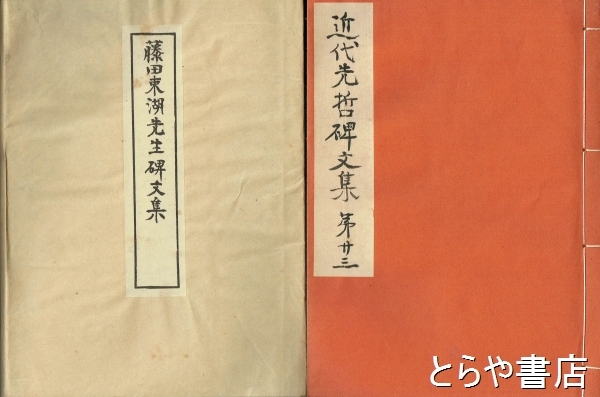 藤田東湖先生碑文集
近代先哲碑文集 第廿三
とらや書店